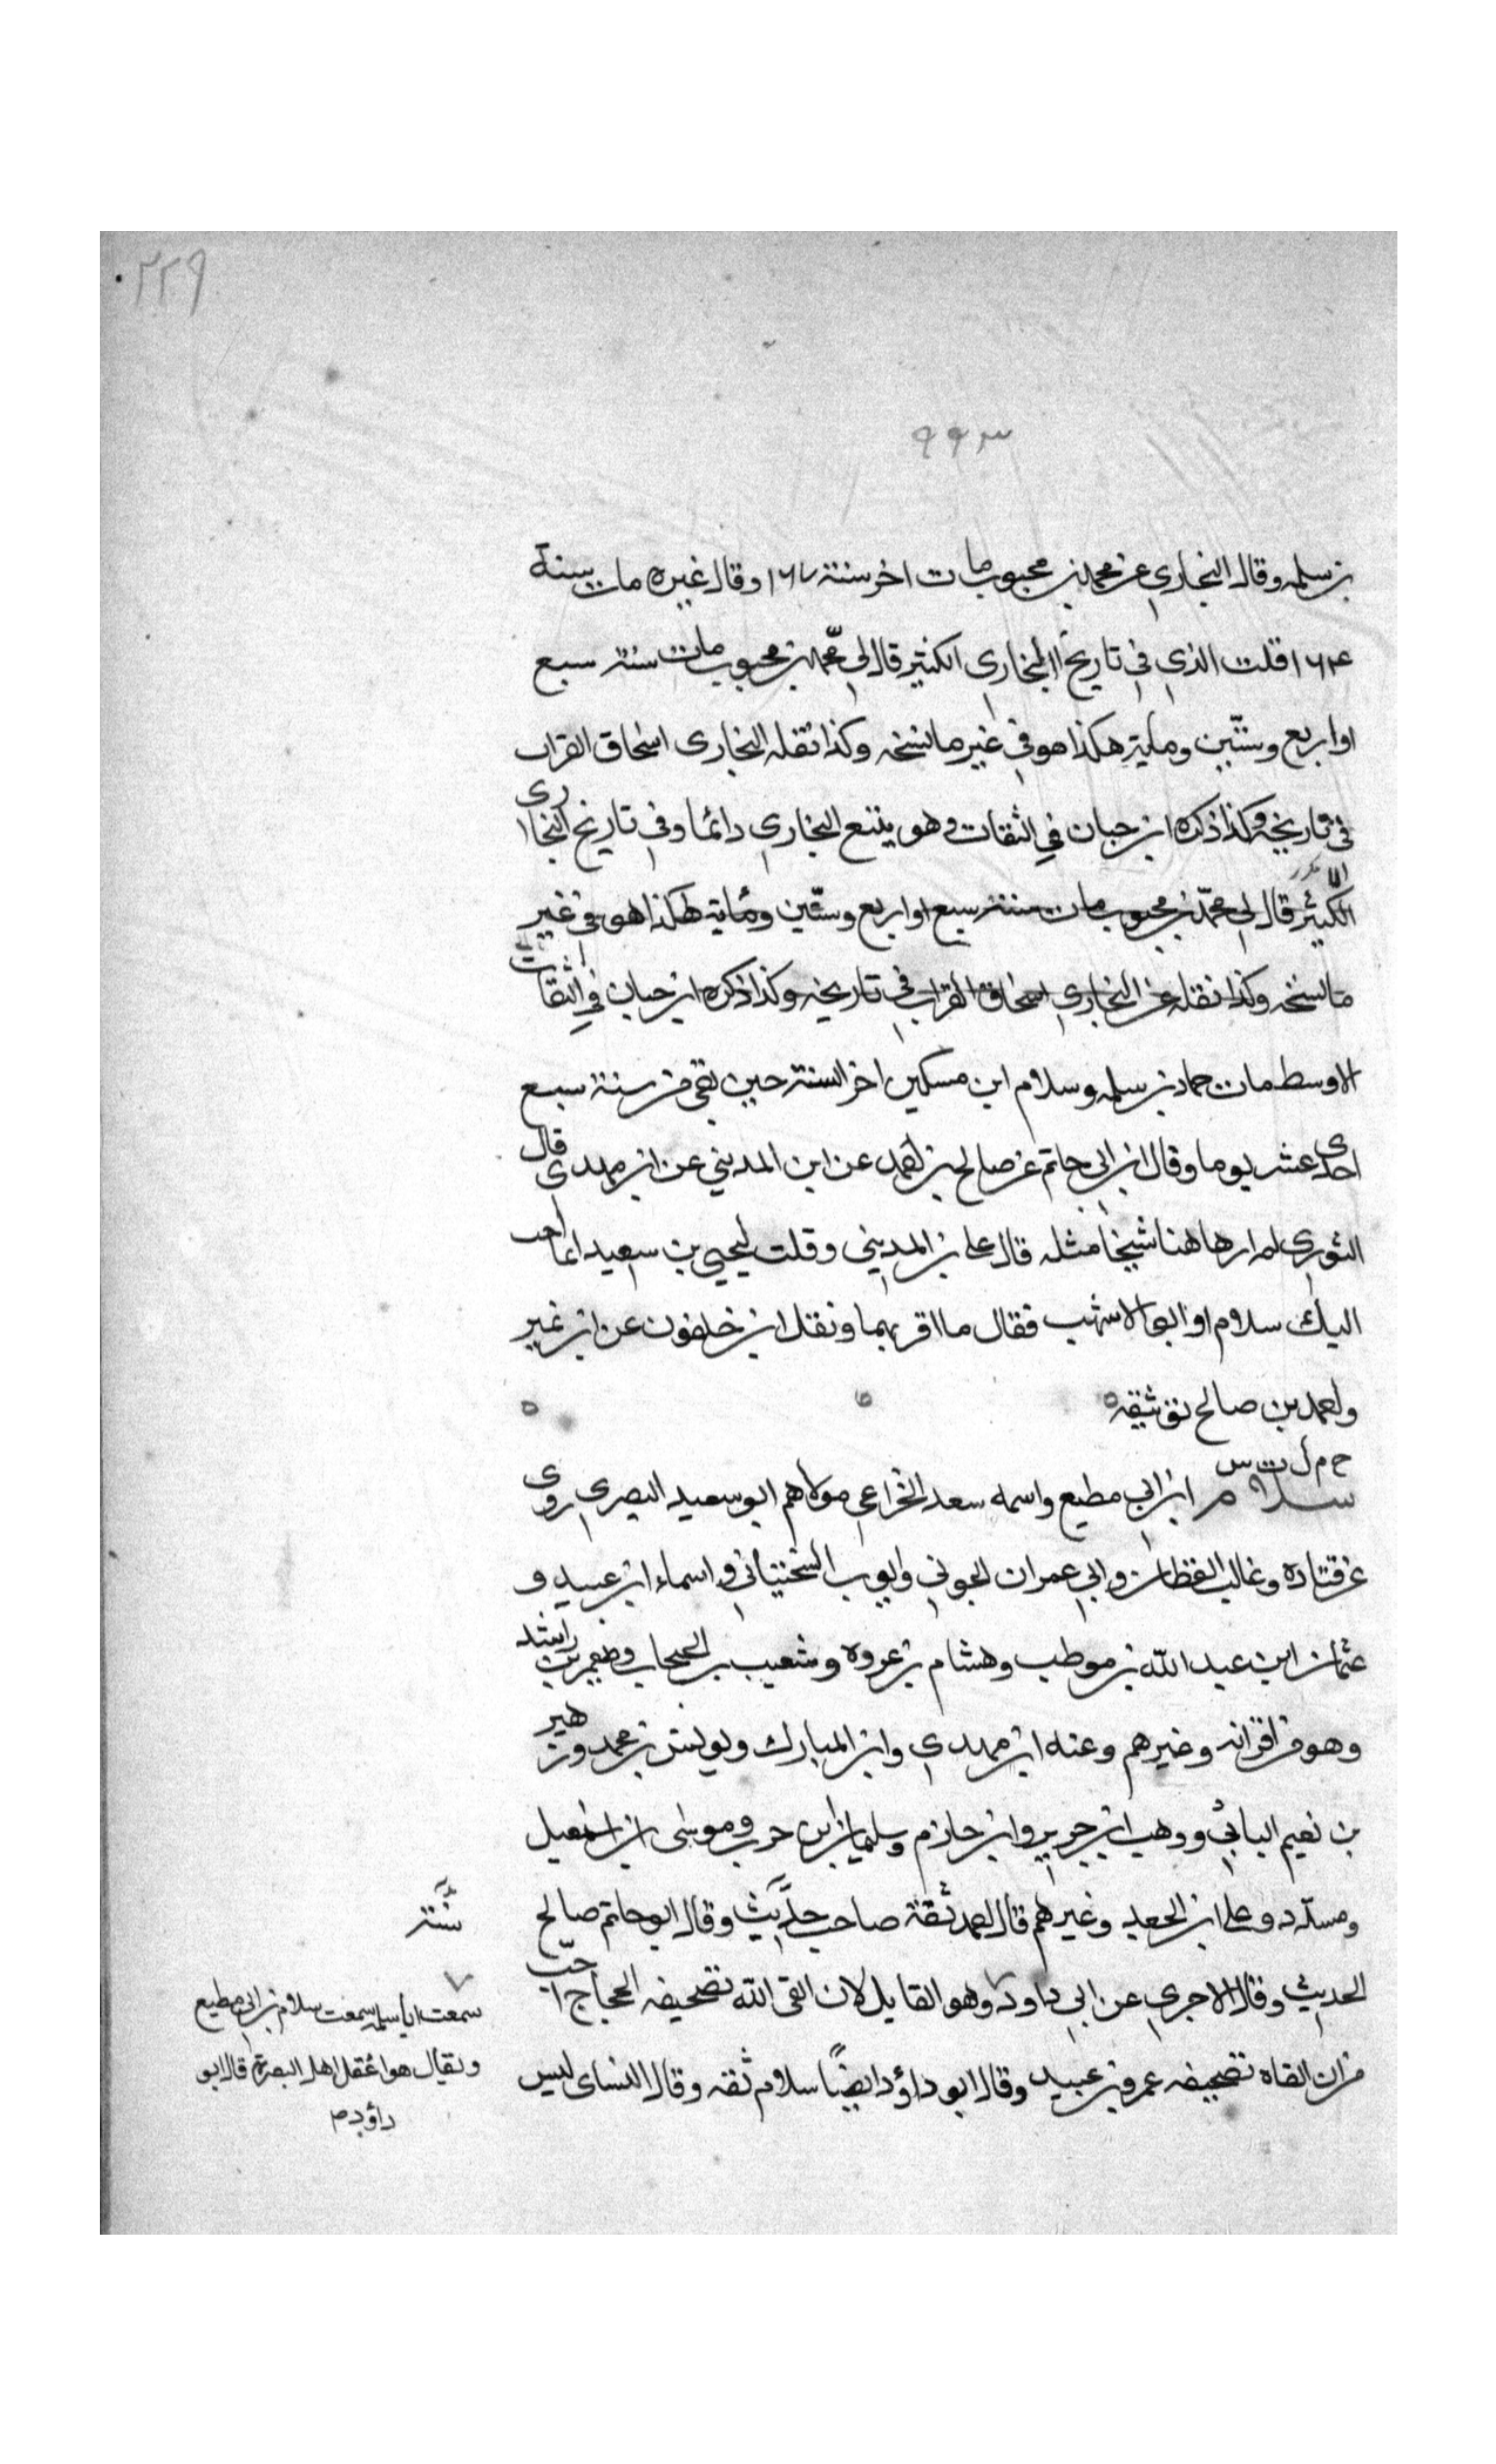 ٢٢٩
٩٩٣
بن سلمه وقال البخاري عن محمد بن محبوب مات اخر سنة ١٦٧ وقال غيره مات سنة
١٦٤ قلت الذي في تاريخ البخاري الكبير قال لي محمد بن محبوب مات سنة سبع
او اربع وستين وماية هكذا هو في غير ما نسخه وكذا نقله البخاري اسحاق القراب
في تاريخه وكذا ذكره ابن حبان في الثقات وهو يتبع البخاري دائما وفي تاريخ البخاري
الكبير قال لي محمد بن محبوب مات سنة سبع او اربع وستين ومأية هكذا هو في غير
ما نسخه وكذا نقله عن البخاري اسحاق القراب في تاريخه وكذا ذكره ابن حبان في الثقات
الاوسط مات حماد بن سلمه وسلام ابن مسكين اخر السنة حين بقي من سنة سبع
احدى عشر يوما وقال ابن ابي حاتم عن صالح بن احمد عن ابن المديني عن ابن مهدي قال
الثوري لم ار هاهنا شيخا مثله قال علي بن المديني وقلت ليحيى بن سعيد ايما احب
اليك سلام او ابو الاشهب فقال ما اقربهما ونقل ابن خلفون عن ابن نمير
واحمد بن صالح توثيقه
خ م ل ت س
سلام ابن ابي مطيع واسمه سعد الخزاعي مولاهم ابو سعيد البصري روى
عن قتاده وغالب القطان وابي عمران الجوني وايوب السختياني واسماء ابن عبيد و
عثمان ابن عبد الله بن موطب وهشام بن عروه وشعيب بن الحبحاب ومعمر بن راشد
وهو من اقرانه وغيرهم وعنه ابن مهدي وابن المبارك ويونس بن محمد وزهير
بن نعيم البابي ووهب ابن جرير وابن حازم وسليمان بن حرب وموسى بن اسمعيل
ومسدد وعلي ابن الجعد وغيرهم قال احمد ثقة صاحب حديث وقال ابو حاتم صالح
الحديث وقال الاجري عن ابي داود وهو القايل لان القى الله تصحيفه الحجاج احب
من ان القاه تصحيفه عمرو بن عبيد وقال ابو داؤد ايضًا سلام ثقه وقال النساي ليس
سمعت ابا سلمه سمعت سلام بن ابي مطيع
ويقال هو اعقل اهل البصرة قال ابو
داؤد